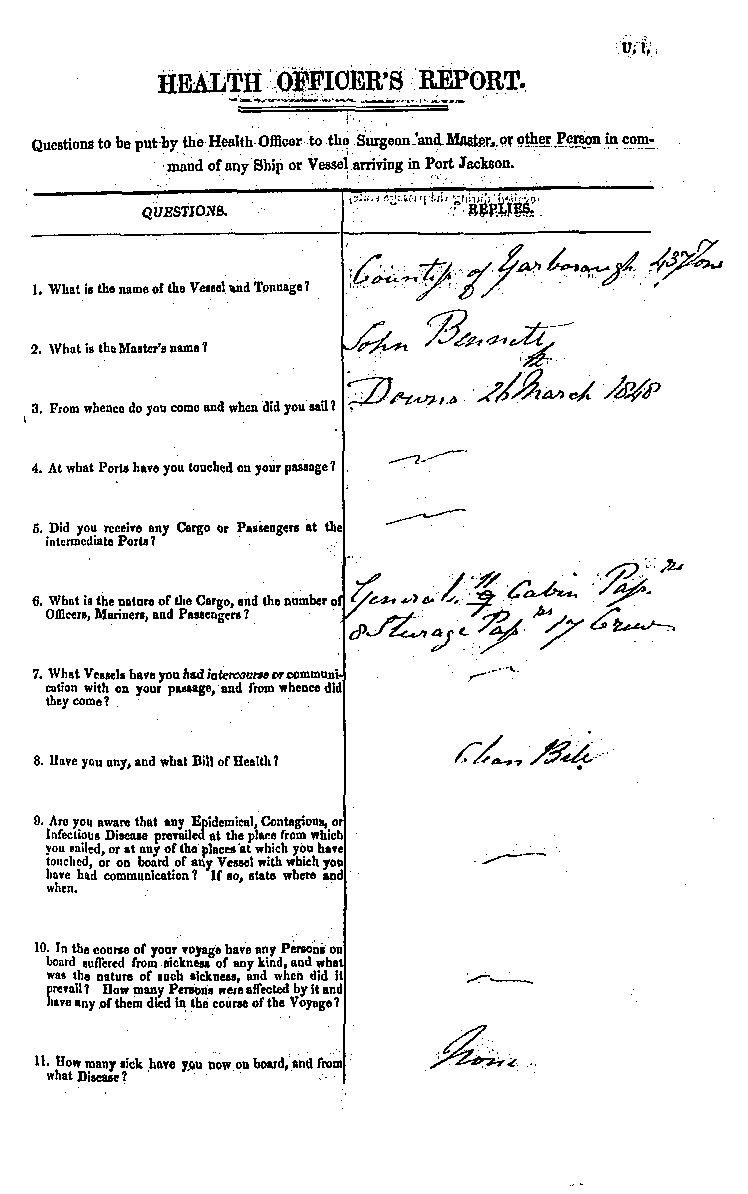 U. 1.
HEALTH OFFICER'S REPORT.
Questions to be put by the Health Officer to the Surgeon and Master, or other Person in com-
mand of any Ship or Vessel arriving in Port Jackson.
QUESTIONS.
REPLIES.
1. What is the name of the Vessel and Tonnage?
Countess of Yarborough 437 Tons
2. What is the Master's name?
John Bennett
3. From whence do you come and when did you sail?
Downs 26th March 1848
4. At what Ports have you touched on your passage?
5. Did you receive any Cargo or Passengers at the
intermediate Ports?
6. What is the nature of the Cargo, and the number of
Officers, Mariners, and Passengers?
General 11 Cabin Passrs
8 Sturage Passrs 17 Crew
7. What Vessels have you had intercourse or communi-
cation with on your passage, and from whence did
they come?
8. Have you any, and what Bill of Health?
Clean Bill
9. Are you aware that any Epidemical, Contagious, or
Infectious Disease prevailed at the place from which
you sailed, or at any of the places at which you have
touched, or on board of any Vessel with which you
have had communication? If so, state where and
when.
10. In the course of your voyage have any Persons on
board suffered from sickness of any kind, and what
was the nature of such sickness, and when did it
prevail? How many Persons were affected by it and
have any of them died in the course of the Voyage?
11. How many sick have you now on board, and from
what Disease?
None